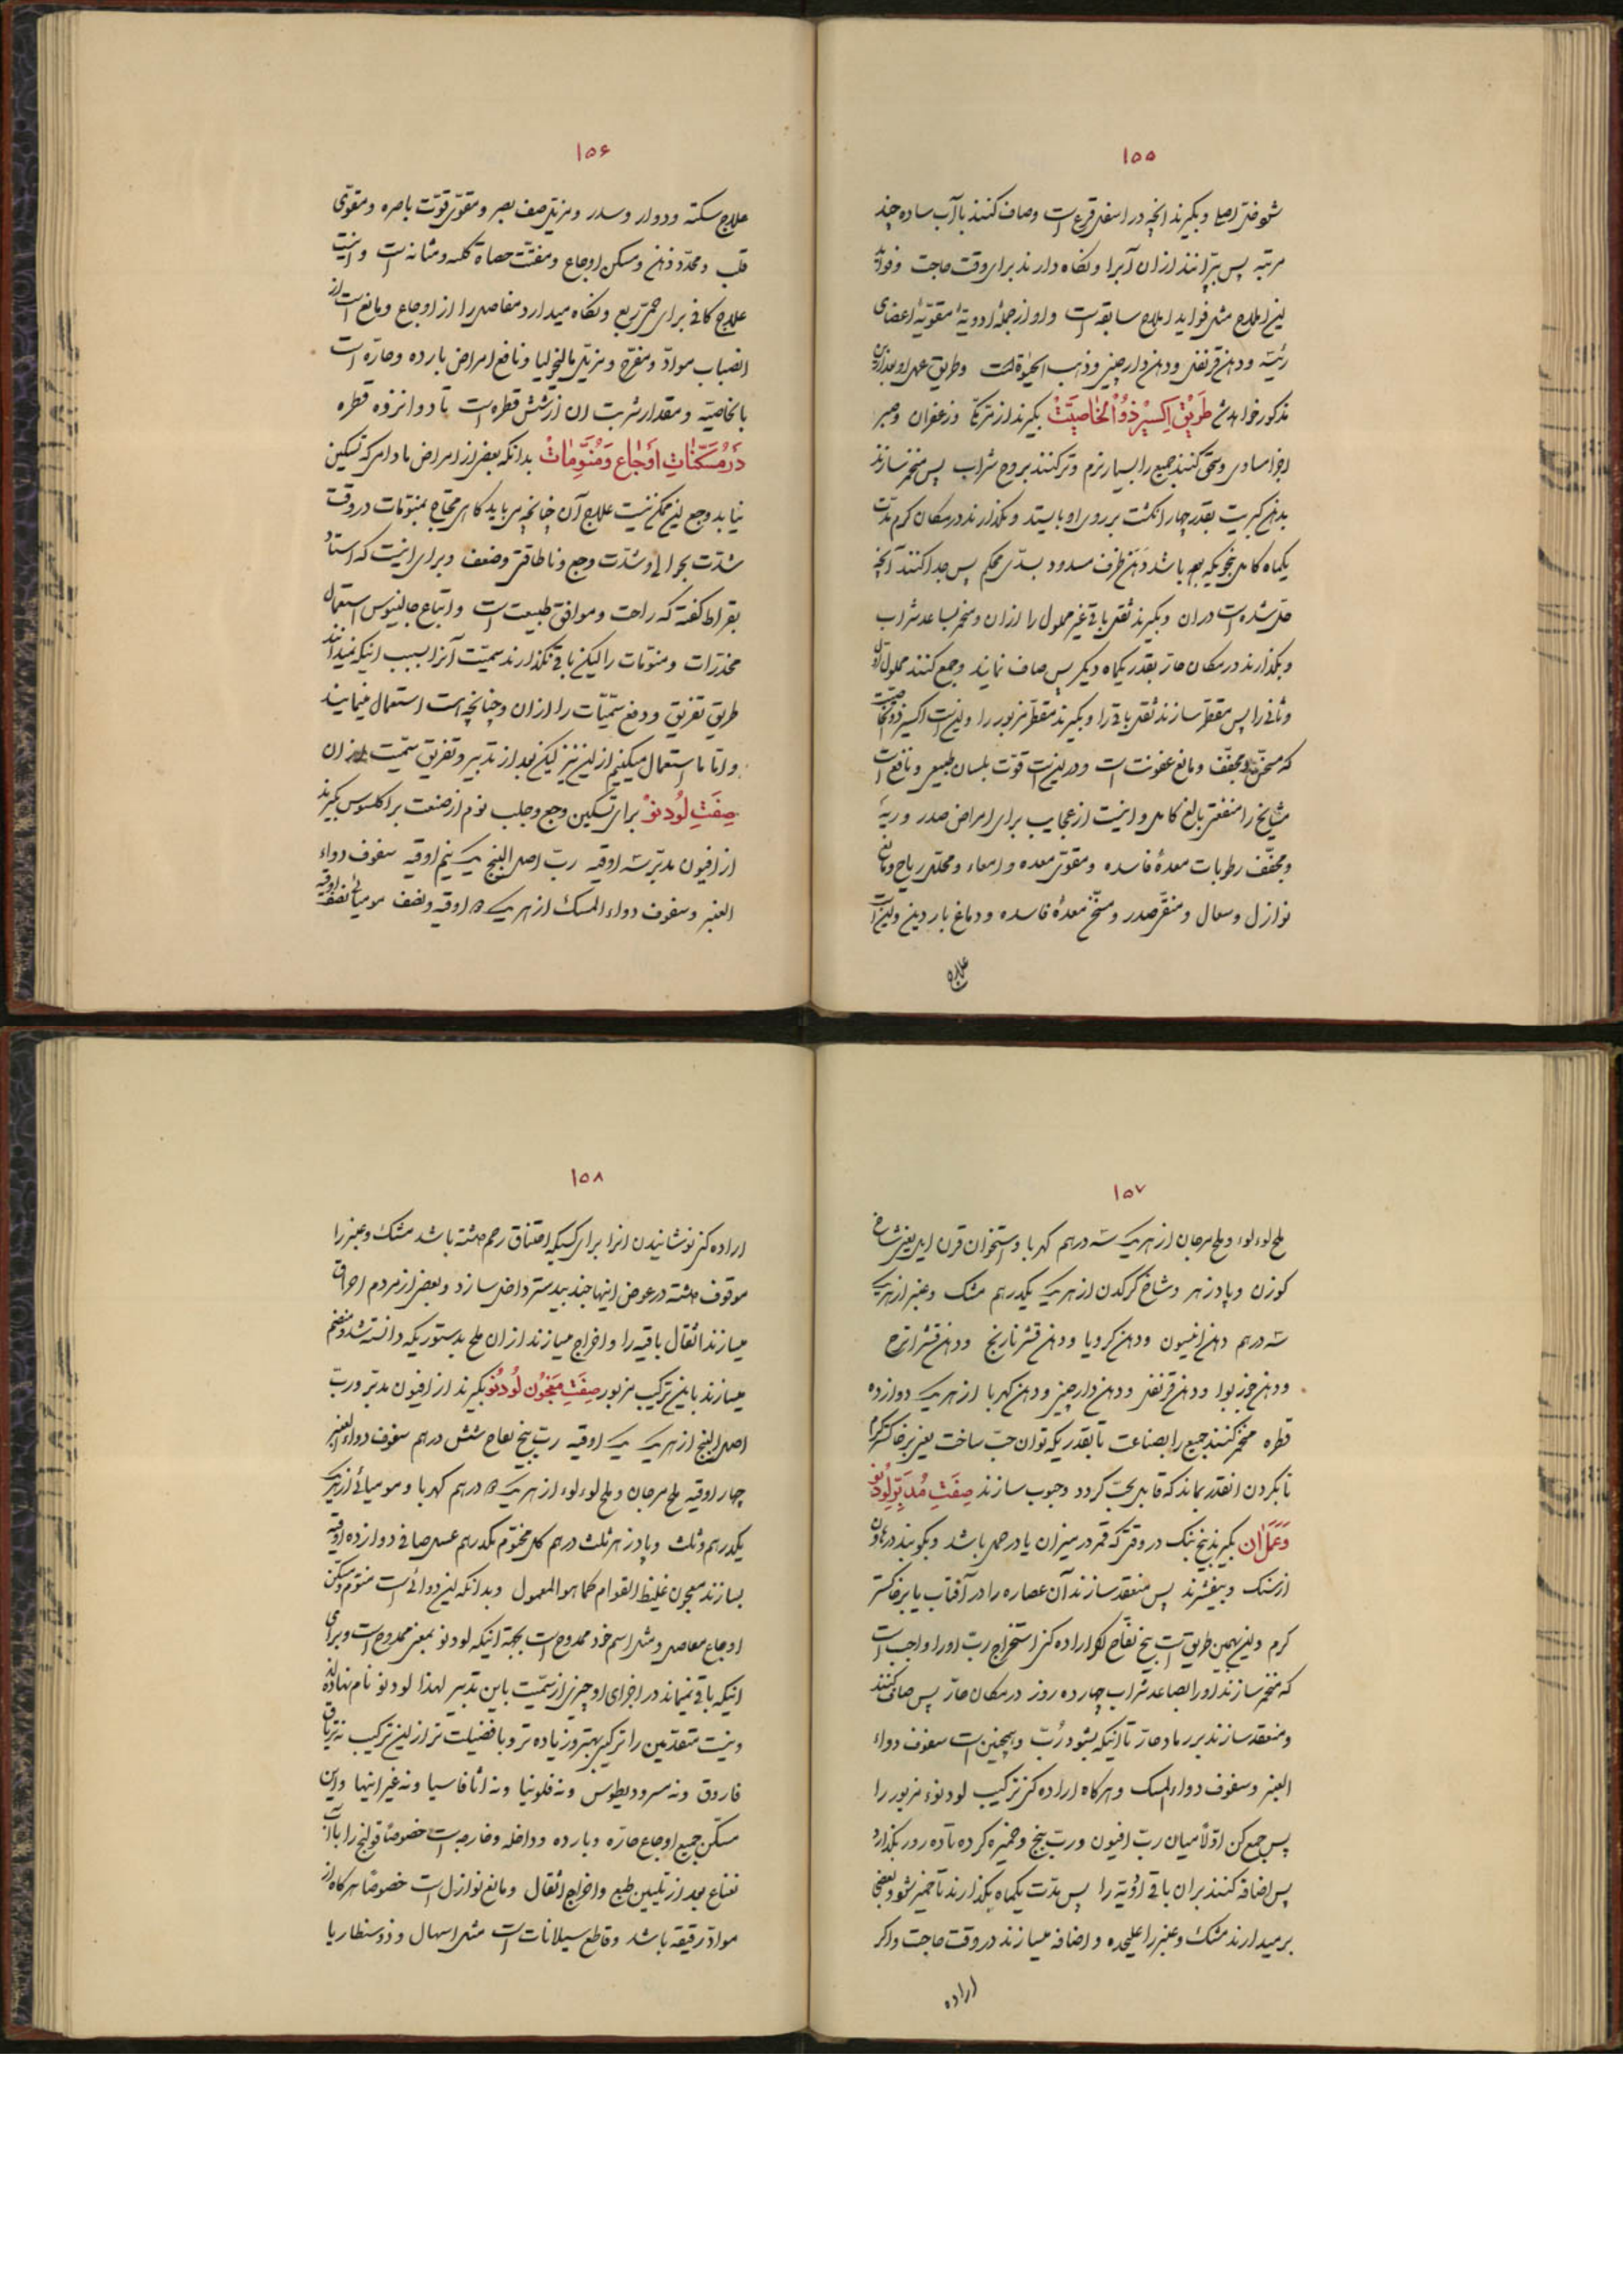 ۱۵۵
شوفتی اصلا وبگیرند انچه در اسفل قرع است وصاف کنند باآب ساده چند
مرتبه پس بپرانند ازان آبرا ونگاه دارند برای وقت حاجت وفواید
این املاح مثل فواید املاح سابقه است واو از جمله ادویهٔ مقویهٔ اعضای
رئیسه ودهن قرنفل ودهن دارچینی وذهب الحیوة است وطریق عمل او بعد ازین
مذکور خواهد شد طَریقِ اِکسیرِ ذُو الْخاصِیَّتْ بگیرند از مرّ مکّی وزعفران وصبر
اجزا مساوی وسحق کنند جمیع را بسیار نرم وتر کنند بروح شراب پس مخمر سازند
بدهن کبریت بقدر چهار انگشت بر روی او بایستد وبگذارند در مکان گرم مدّت
یکماه کامل بنحویکه باشد دهن ظرف مسدود بسدّی محکم پس جدا کنند آنچه
حل شده است دران وبگیرند ثفل باقی غیر محلول را ازان ومخمر بصاعد شراب
وبگذارند در مکان حارّ بقدر یکماه دیگر پس صاف نمایند وجمع کنند محلول اول
وثانی را پس مقطر سازند ثفل باقی را وبگیرند مقطّر مزبور را واین است اکسیر ذو الخاصیت
که مسخّن ومجفف ومانع عفونت است ودرین است قوّت بلسان طبیعی ونافع است
مشایخ را منفعتی بالغ کامل واینست از عجایب برای امراض صدر وریهٔ
ومجفّف رطوبات معدهٔ فاسده ومقوّی معده وامعاء ومحلل ریاح ومانع
نوازل وسعال ومنقی صدر ومسخّن معدهٔ فاسده ودماغ باردین واین است
علاج
۱۵۶
علاج سکته ودوار وسدر ومزیل ضعف بصر ومقوّی قوّت باصره ومقوّی
قلب ومحدّد ذهن ومسکن اوجاع ومفتّت حصاة کلیه ومثانه است واینست
علاج کافی برای حمّی ربع ونگاه میدارد مفاصل را از اوجاع ومانع است از
انصباب موادّ ومفرّح ومزیل مالیخولیا ونافع امراض بارده وحارّه است
بالخاصیّه ومقدار شربت ان از شش قطره است تا دوانزده قطره
دَرْ مُسَکِّناتِ اَوْجاع وَمُنَوِّماتْ بدانکه بعضی از امراض مادامرکه تسکین
نیابد وجع این ممکن نیست علاج آن چنانچه می باید گاهی محتاج بمنوّمات در وقت
شدّت بحرانی وشدّت وجع وناطاقتی وضعف وبرای اینست که استاد
بقراط گفته که راحت وموافق طبیعت است واتباع جالینوس استعمال
مخدّرات ومنوّمات را لیکن باقی نگذارند سمیّت آنرا بسبب اینکه نمیدانند
طریق تفریق ودفع سمّیّات را ازان وچنانچه است استعمال نمینمایند
واما ما استعمال میکنیم ازین نیز لیکن بعد از تدبیر وتفریق سمّیت ازان
صِفَتِ لُودَنوْ برای تسکین وجع وجلب نوم از صنعت براکلسوس بگیرند
از افیون مدبّر سه اوقیه ربّ اصل البنج یک نیم اوقیه سفوف دواء
العنبر وسفوف دواء المسک از هر یک اوقیه ونصف مومیائی نصف اوقیه
۱۵۷
ملح لوءلوء وملح مرجان از هر یک سه درهم کهربا واستخوان قرن ایل یعنی شاخ
گوزن وپادزهر وشاخ کرکدن از هر یک یکدرهم مشک وعنبر از هریک
سه درهم دهن انیسون ودهن کرویا ودهن قشر نارنج ودهن قشر اترج
ودهن جوز بوا ودهن قرنفل ودهن دارچینی ودهن کهربا از هر یک دوازده
قطره مخمر کنند جمیع را بصناعت تا بقدریکه توان حبّ ساخت یعنی بر خاکستر گرم
تا بکردن انقدر بماند که قابل حبّ گردد وحبوب سازند صِفَتِ مُدَبَّرِ لُودَنوْ
وَعَمَلِ اٰن بگیرند بیخ بنک در وقتی که قمر در میزان یا در حمل باشد وبکوبند در هاون
از سنک وبیفشرند پس منعقد سازند آن عصاره را در آفتاب یا بر خاکستر
گرم واین بهمین طریق است بیخ تفّاح اکر اراده کنی استخراج ربّ او را واجب است
که مخمر سازند او را بصاعد شراب چهارده روز در مکان حارّ پس صاف کنند
ومنعقد سازند بر رماد حارّ تا اینکه بشود رُبّ وهمچنین است سفوف دواء
العنبر وسفوف دواء المسک وهرگاه اراده کنی ترکیب لودنوء مزبور را
پس جمع کن اوّلاً میان ربّ افیون وربّ بنج وخمیره کرده تا ده روز بگذارد
پس اضافه کنند بران باقی ادویه را پس مدّت یکماه بگذارند تا خمیر شود وبعضی
برمیدارند مشک وعنبر را علیحده واضافه میسازند در وقت حاجت واکر
اراده
۱۵۸
اراده کنی نوشانیدن انرا برای کسیکه اختناق رحم داشته باشد مشک وعنبر را
موقوف داشته در عوض اینها جندبیدستر داخل سازد وبعضی از مردم احراق
میسازند اثقال باقیه را واخراج میسازند ازان ملح بدستوریکه دانسته شد ومنضم
میسازند باین ترکیب مزبور صِفَتِ مَعْجُونِ لُودَنوْ بگیرند از افیون مدبّر وربّ
اصل البنج از هر یک یک اوقیه ربّ بیخ تفاح شش درهم سفوف دواء العنبر
چهار اوقیه ملح مرجان وملح لوءلوء از هر یک درهم کهربا ومومیائی از هر یک
یکدرهم وثلث وپادزهر ثلث درهم گل مختوم یکدرهم عسل صافی دوازده اوقیه
بسازند معجون غلیظ القوام کما هو المعمول وبدانکه این دوائی است منوّم ومسکّن
اوجاع مفاصل ومثل اسم خود ممدوح است بجهة اینکه لودنو بمعنی ممدوح است وبرای
اینکه باقی نمیماند در اجزای او چیزی از سمّیت باین تدبیر لهذا لودنو نام نهاده اند
ونیست متقدّمین را ترکیبی بهتر وزیاده تر وبا فضیلت تر ازین ترکیب نه تریاق
فاروق ونه مسرودیطوس ونه فلونیا ونه اثاناسیا ونه غیر اینها واین
مسکّن جمیع اوجاع حارّه وبارده وداخله وخارجه است خصوصاً قولنج را باآب
نعناع بعد از تلیین طبع واخراج اثقال ومانع نوازل است خصوصاً هرگاه از
موادّ رقیقه باشد وقاطع سیلانات است مثل اسهال وذوسنطاریا